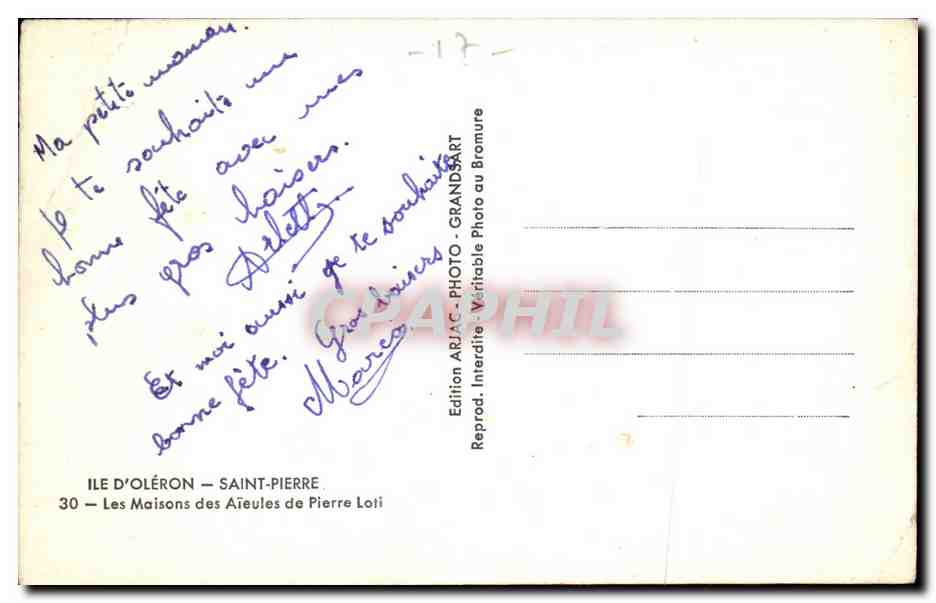 - 17 -
Ma petite maman.
Je te souhaite une
bonne fête avec mes
plus gros baisers.
Arlette
Et moi aussi je te souhaite
bonne fête. Gros baisers
Marco.
ILE D'OLÉRON — SAINT-PIERRE
30 — Les Maisons des Aïeules de Pierre Loti
Edition ARJAC - PHOTO - GRANDSART
Reprod. Interdite - Véritable Photo au Bromure
CPAPHIL